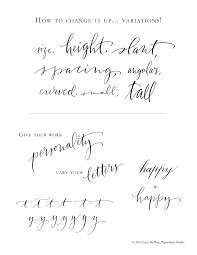 HOW TO CHANGE IT UP... VARIATIONS!
size, height, slant,
spacing, angular,
curved, small, tall
GIVE YOUR WORK
personality
VARY YOUR
letters
happy
happy
t t t t t t t
y y y y y y y